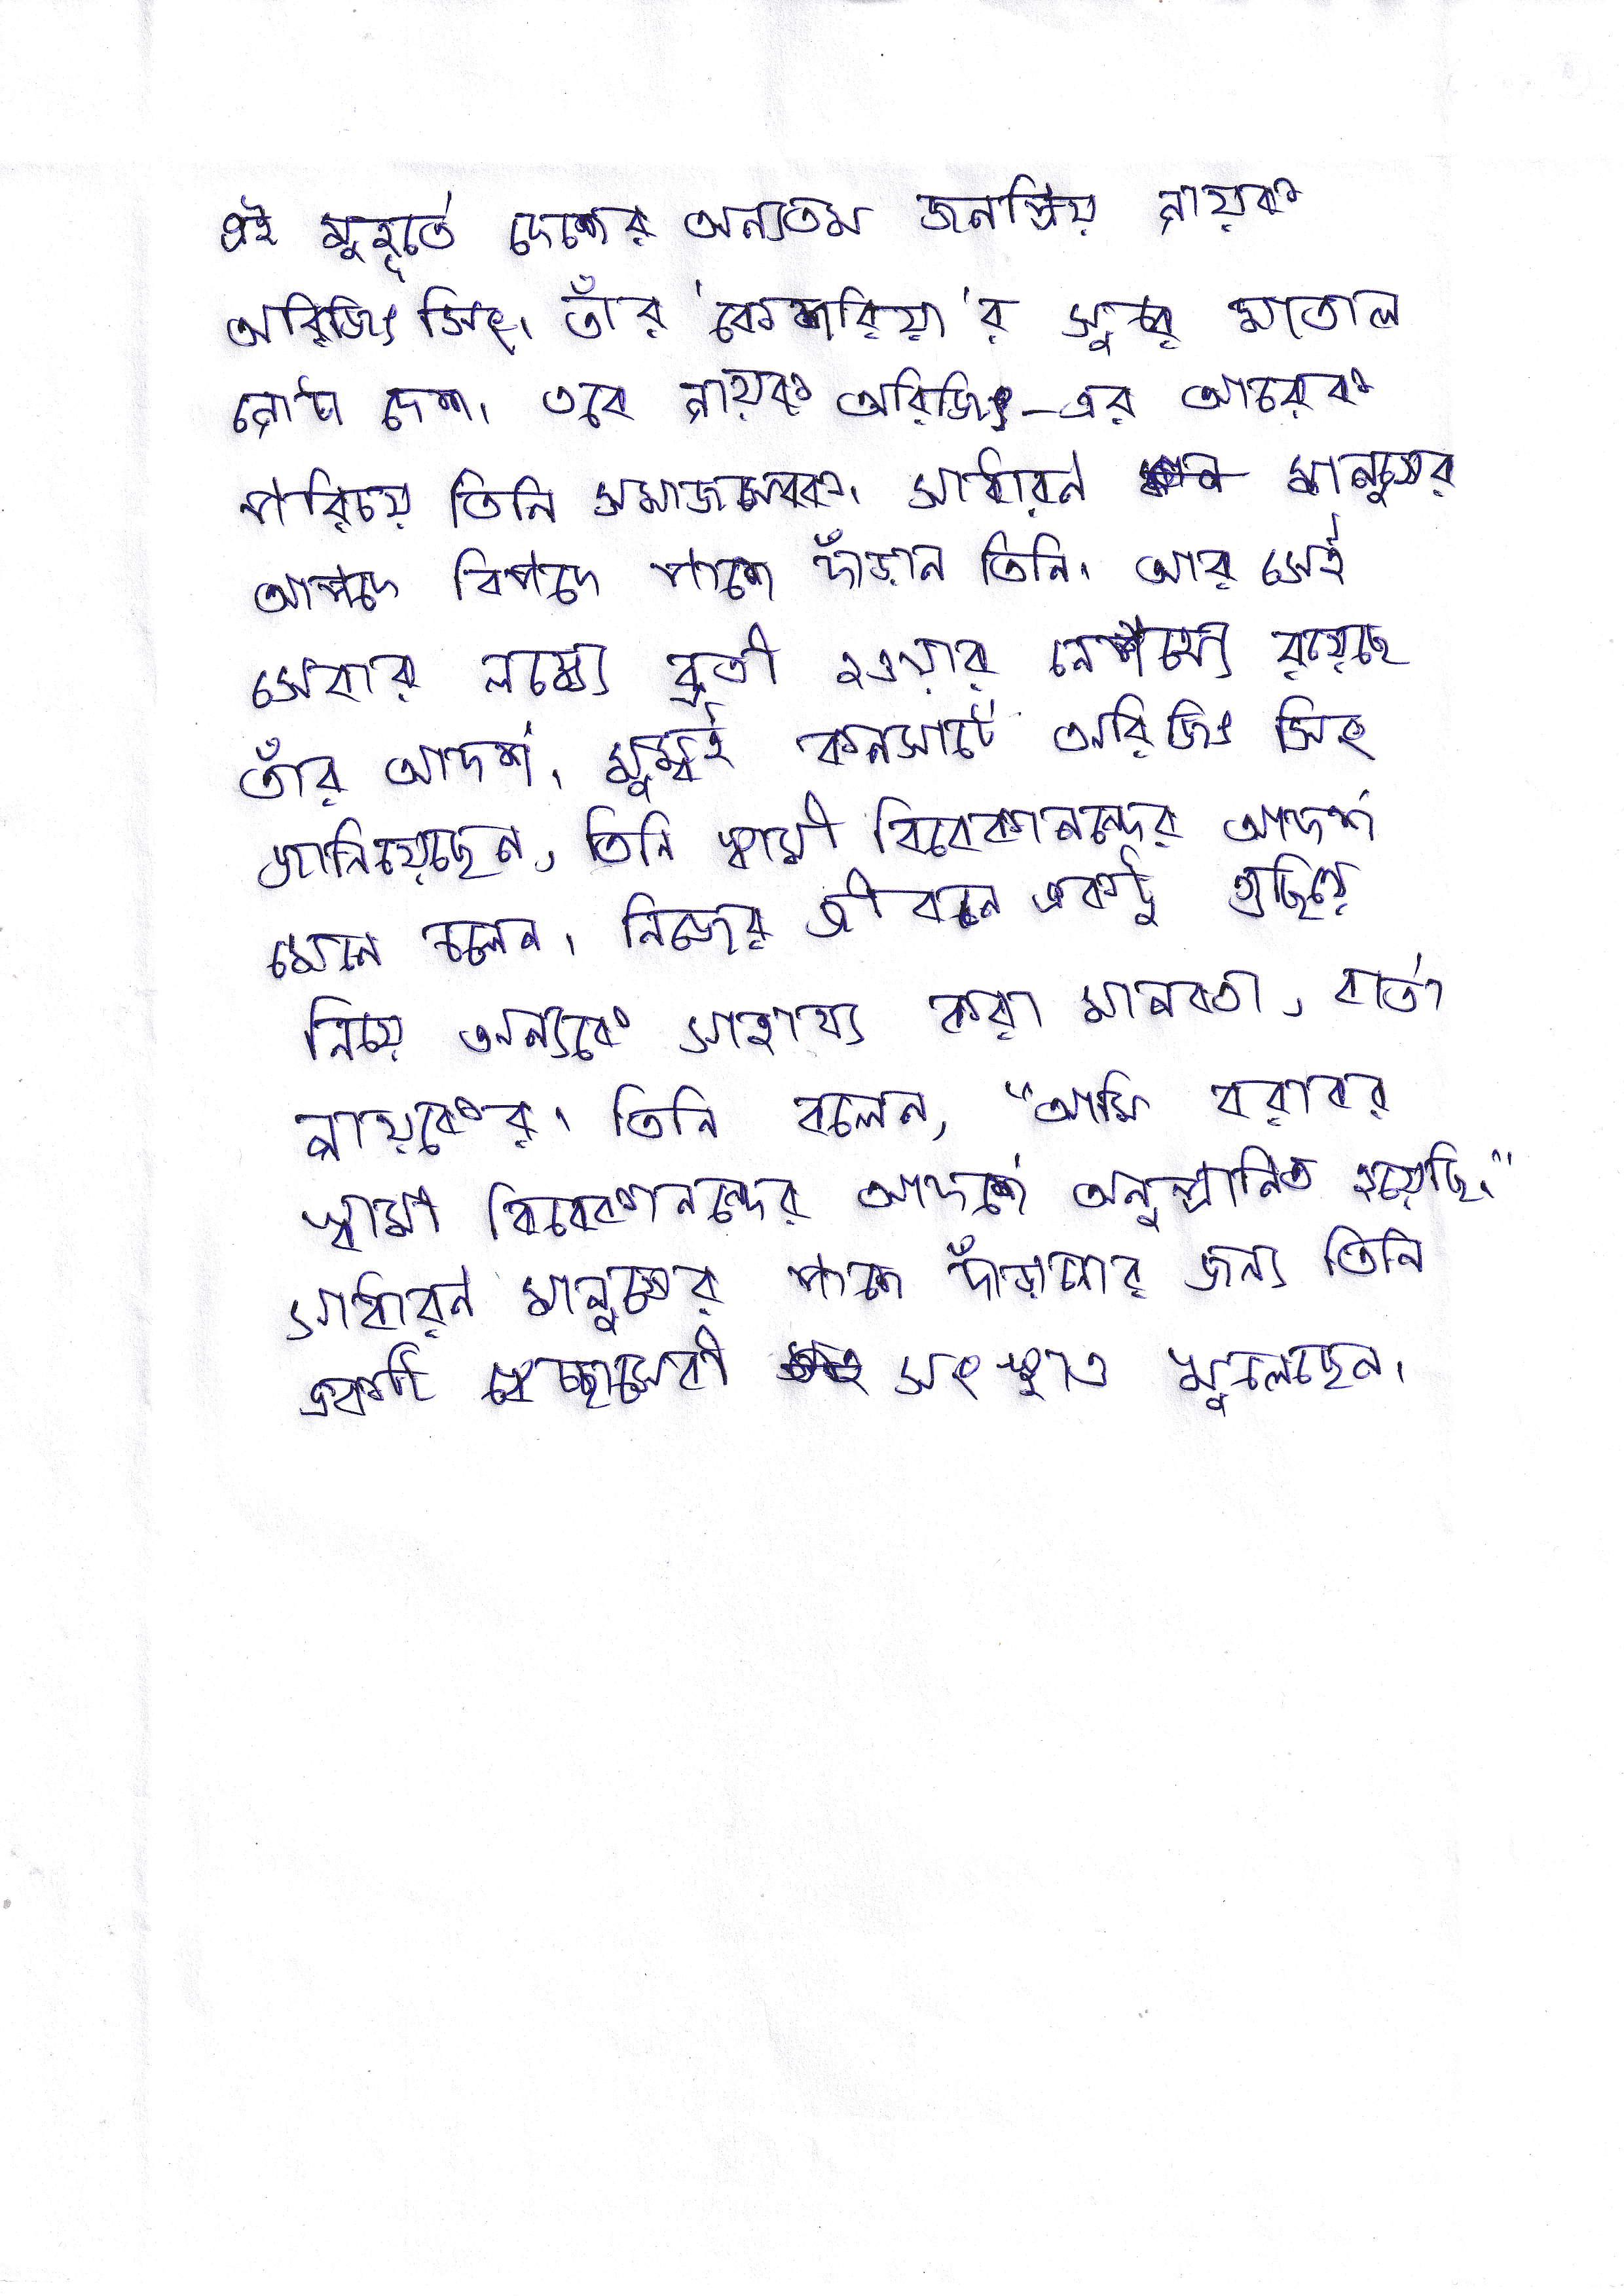 এই মুহূর্তে দেশের অন্যতম জনপ্রিয় গায়ক
অরিজিৎ সিং। তাঁর 'কেশরিয়া'র সুরে মাতোল
গোটা দেশ। তবে গায়ক অরিজিৎ-এর আরেক
পরিচয় তিনি সমাজসেবক। সাধারন মানুষের
আপদে বিপদে পাশে দাঁড়ান তিনি। আর সেই
সেবার লক্ষ্যে ব্রতী হওয়ার নেপথ্যে রয়েছে
তাঁর আদর্শ। মুম্বই কনসার্টে অরিজিৎ সিং
জানিয়েছেন, তিনি স্বামী বিবেকানন্দের আদর্শ
মেনে চলেন। নিজের জীবনে একটু গুছিয়ে
নিয়ে অন্যকে সাহায্য করা মানবতা, বার্তা
গায়কের। তিনি বলেন, "আমি বরাবর
স্বামী বিবেকানন্দের আদর্শে অনুপ্রানিত হয়েছি।"
সাধারন মানুষের পাশে দাঁড়ানোর জন্য তিনি
একটি স্বেচ্ছাসেবী সংস্থাও খুলেছেন।